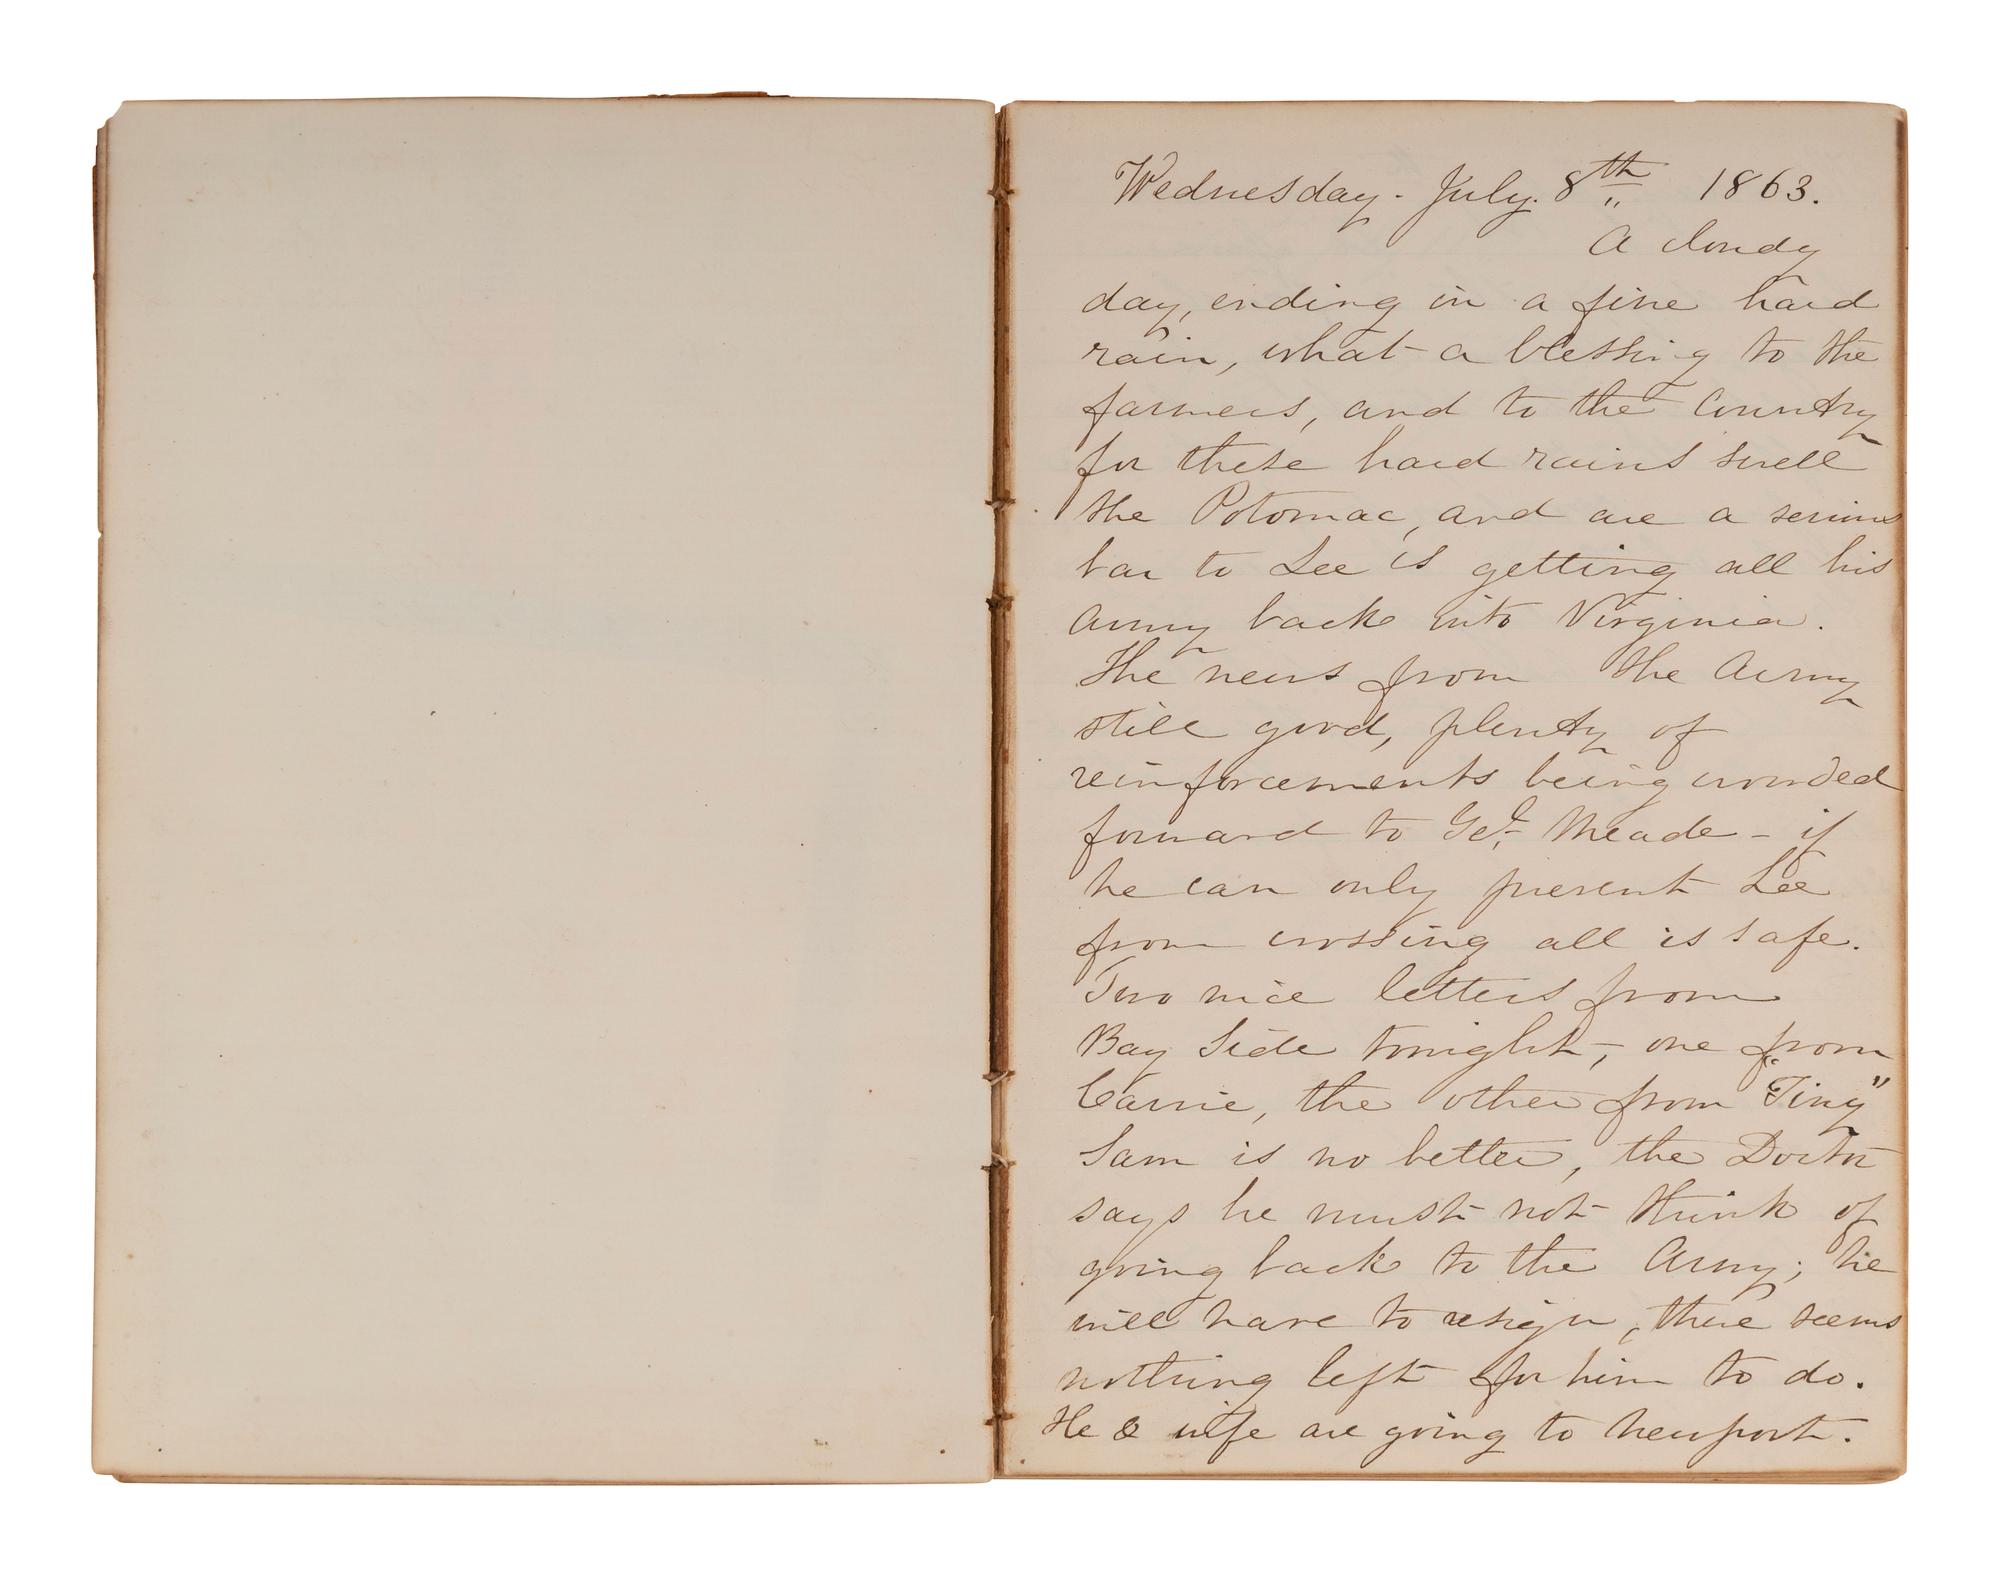 Wednesday - July. 8th 1863.
A cloudy
day, ending in a fine hard
rain, what a blessing to the
farmers, and to the Country
for these hard rains swell
the Potomac, and are a serious
bar to Lee is getting all his
Army back into Virginia.
The news from the Army
still good, plenty of
reinforcements being crowded
forward to Gel. Meade - if
he can only prevent Lee
from crossing all is safe.
Two nice letters from
Bay Side tonight, one from
Carrie, the other from "Tiny"
Sam is no better, the Doctor
says he must not think of
going back to the Army; he
will have to resign, there seems
nothing left for him to do.
He & wife are going to Newport.